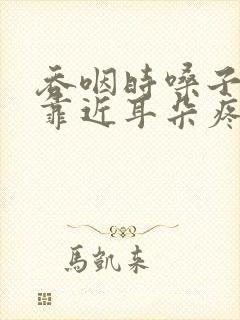 吞咽时嗓子
靠近耳朵疼
馬凱来